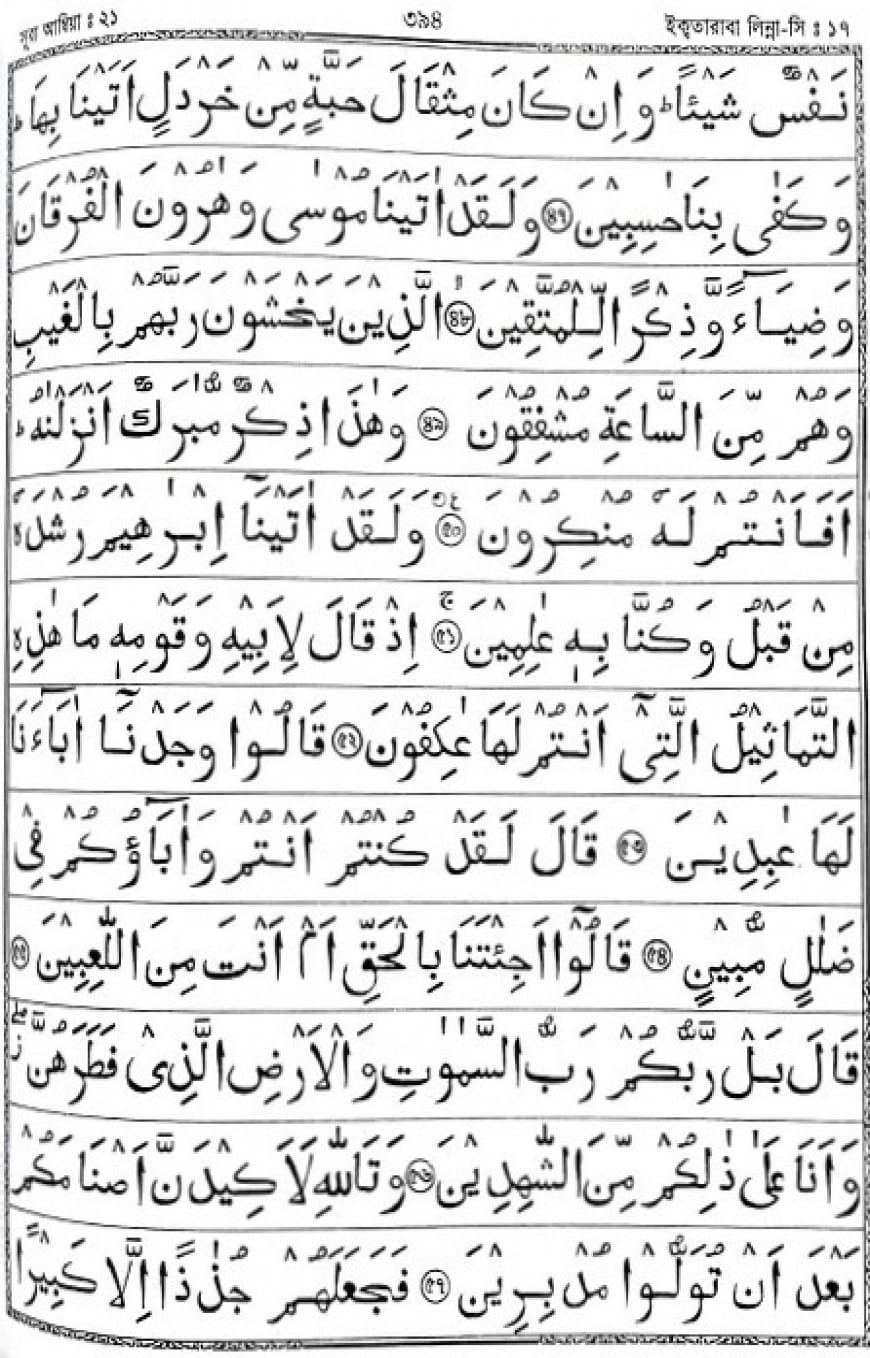 সূরা আম্বিয়া ঃ ২১ ৩৯৪ ইক্বতারাবা লিন্না-সি ঃ ১৭
نَفْسٌ شَيْئًا ؕ وَ اِنْ كَانَ مِثْقَالَ حَبَّةٍ مِّنْ خَرْدَلٍ اَتَيْنَا بِهَا ؕ
وَ كَفٰى بِنَا حٰسِبِيْنَ ﴿৪৭﴾ وَ لَقَدْ اٰتَيْنَا مُوْسٰى وَ هٰرُوْنَ الْفُرْقَانَ
وَ ضِيَآءً وَّ ذِكْرًا لِّلْمُتَّقِيْنَ ﴿৪৮﴾ ۙ الَّذِيْنَ يَخْشَوْنَ رَبَّهُمْ بِالْغَيْبِ
وَ هُمْ مِّنَ السَّاعَةِ مُشْفِقُوْنَ ﴿৪৯﴾ وَ هٰذَا ذِكْرٌ مُّبٰرَكٌ اَنْزَلْنٰهُ ؕ
اَفَاَنْتُمْ لَهٗ مُنْكِرُوْنَ ﴿৫০﴾ ع ৩ وَ لَقَدْ اٰتَيْنَآ اِبْرٰهِيْمَ رُشْدَهٗ
مِنْ قَبْلُ وَ كُنَّا بِهٖ عٰلِمِيْنَ ﴿৫১﴾ ۚ اِذْ قَالَ لِاَبِيْهِ وَ قَوْمِهٖ مَا هٰذِهِ
التَّمَاثِيْلُ الَّتِيْٓ اَنْتُمْ لَهَا عٰكِفُوْنَ ﴿৫২﴾ قَالُوْا وَجَدْنَآ اٰبَآءَنَا
لَهَا عٰبِدِيْنَ ﴿৫৩﴾ قَالَ لَقَدْ كُنْتُمْ اَنْتُمْ وَ اٰبَآؤُكُمْ فِيْ
ضَلٰلٍ مُّبِيْنٍ ﴿৫৪﴾ قَالُوْٓا اَجِئْتَنَا بِالْحَقِّ اَمْ اَنْتَ مِنَ اللّٰعِبِيْنَ ﴿৫৫﴾
قَالَ بَلْ رَّبُّكُمْ رَبُّ السَّمٰوٰتِ وَ الْاَرْضِ الَّذِيْ فَطَرَهُنَّ ۖز
وَ اَنَا عَلٰى ذٰلِكُمْ مِّنَ الشّٰهِدِيْنَ ﴿৫৬﴾ وَ تَاللّٰهِ لَاَكِيْدَنَّ اَصْنَامَكُمْ
بَعْدَ اَنْ تُوَلُّوْا مُدْبِرِيْنَ ﴿৫৭﴾ فَجَعَلَهُمْ جُذٰذًا اِلَّا كَبِيْرًا